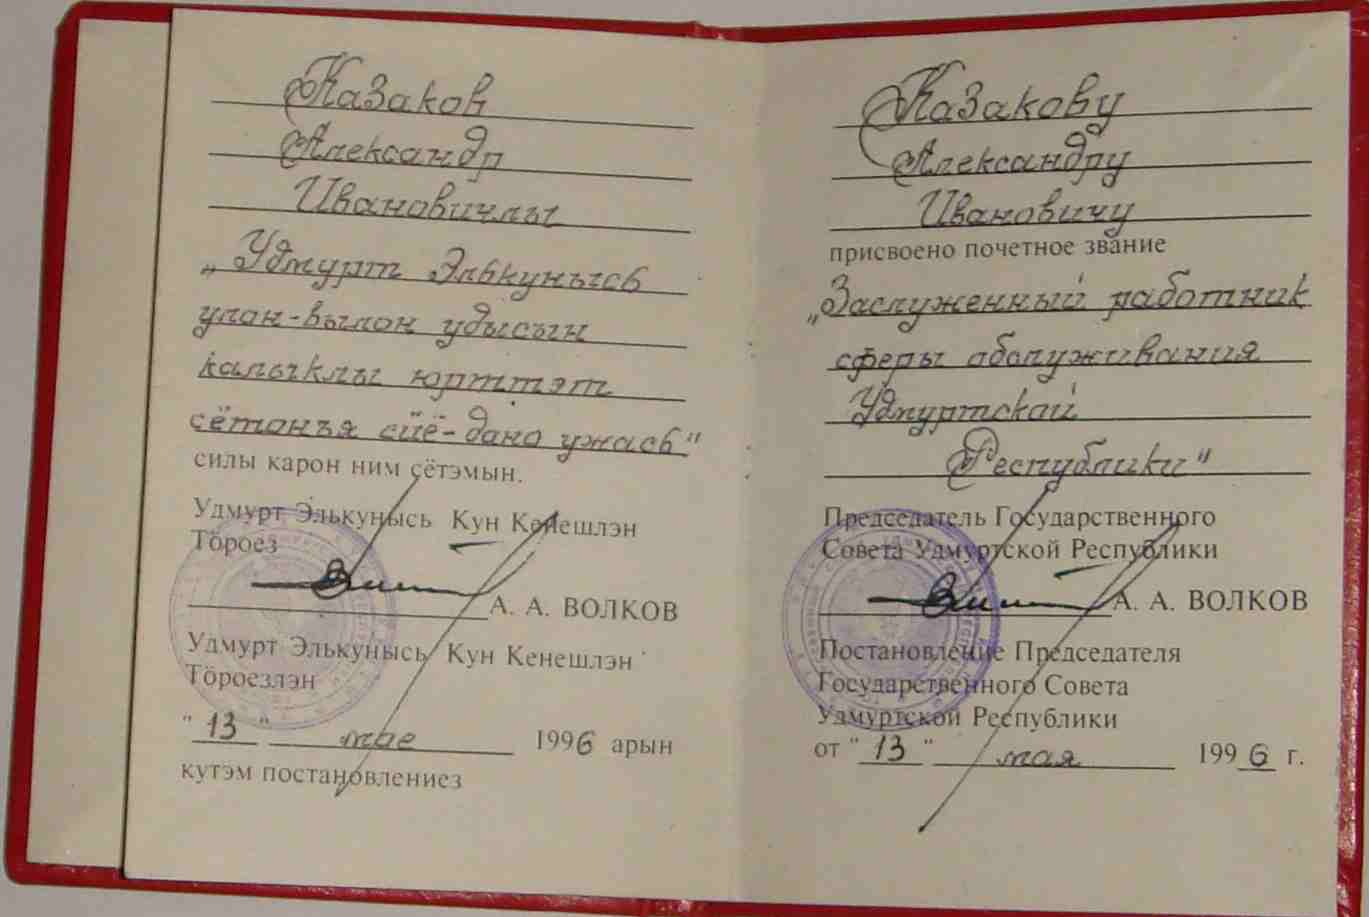 Казаков
Александр
Ивановичлы
„Удмурт Элькунысь
улон-вылон удысын
калыклы юрттэт
сётонъя сӥё-дано ужась"
силы карон ним сётэмын.
Удмурт Элькунысь Кун Кенешлэн
Тӧроез
А. А. ВОЛКОВ
Удмурт Элькунысь Кун Кенешлэн
Тӧроезлэн
" 13 " мае 1996 арын
кутэм постановлениез
Казакову
Александру
Ивановичу
присвоено почетное звание
„Заслуженный работник
сферы обслуживания
Удмуртской
Республики"
Председатель Государственного
Совета Удмуртской Республики
А. А. ВОЛКОВ
Постановление Председателя
Государственного Совета
Удмуртской Республики
от " 13 " мая 1996 г.